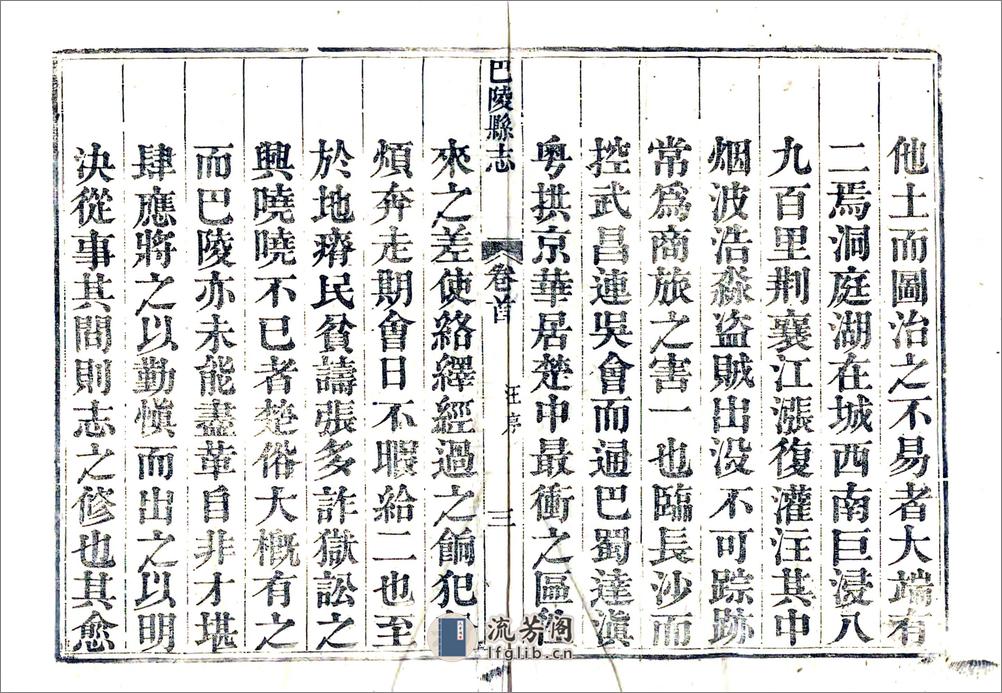 他土而圖治之不易者大端有
二焉洞庭湖在城西南巨浸八
九百里荆襄江漲復灌汪其中
烟波浩淼盗賊出没不可踪跡
常爲商旅之害一也臨長沙而
控武昌連吳會而通巴蜀達滇
粤拱京華居楚中最衝之區
巴陵縣志
卷首
汪序
三
來之差使絡繹經過之餉犯
煩奔走期會日不暇給二也至
於地瘠民貧譸張多詐獄訟之
興曉曉不已者楚俗大概有之
而巴陵亦未能盡革自非才堪
肆應將之以勤愼而出之以明
決從事其間則志之修也其愈
流芳阁
lfglib.cn